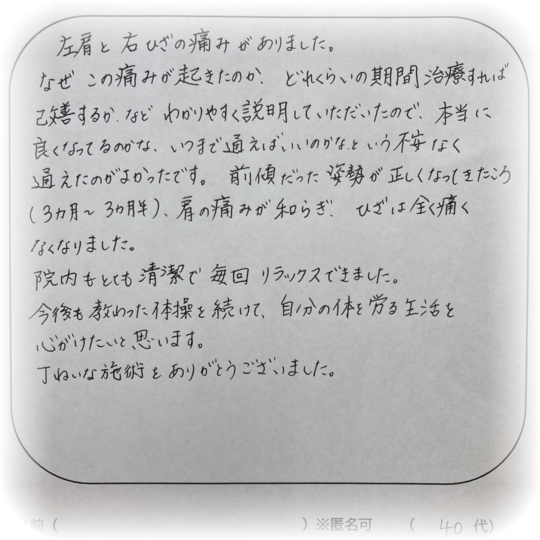 左肩と右ひざの痛みがありました。
なぜこの痛みが起きたのか、どれくらいの期間治療すれば
改善するか、など わかりやすく説明していただいたので、本当に
良くなってるのかな、いつまで通えばいいのかな、という不安なく
通えたのがよかったです。前傾だった姿勢が正しくなってきたころ
(3ヵ月〜3ヵ月半)、肩の痛みが和らぎ、ひざは全く痛く
なくなりました。
院内もとても清潔で毎回リラックスできました。
今後も教わった体操を続けて、自分の体を労る生活を
心がけたいと思います。
丁ねいな施術をありがとうございました。
前( )※匿名可 ( 40 代)